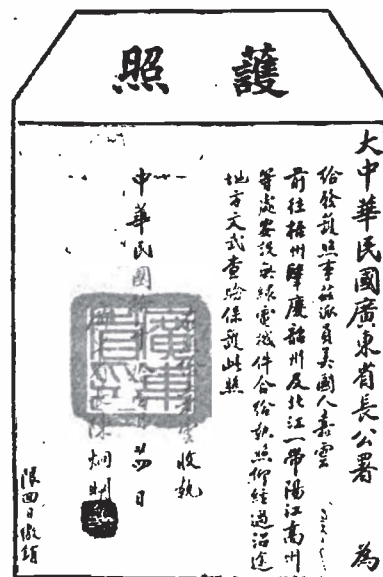 護照
大中華民國廣東省長公署 為
給發護照事茲派員美國人壽雲
前往梧州肇慶韶州及北江一帶陽江高州
等處安設無線電機件合給執照仰經過沿途
地方文武查驗保護此照
雲收執
中華民國 廿四日
陳炯明
限四日繳銷